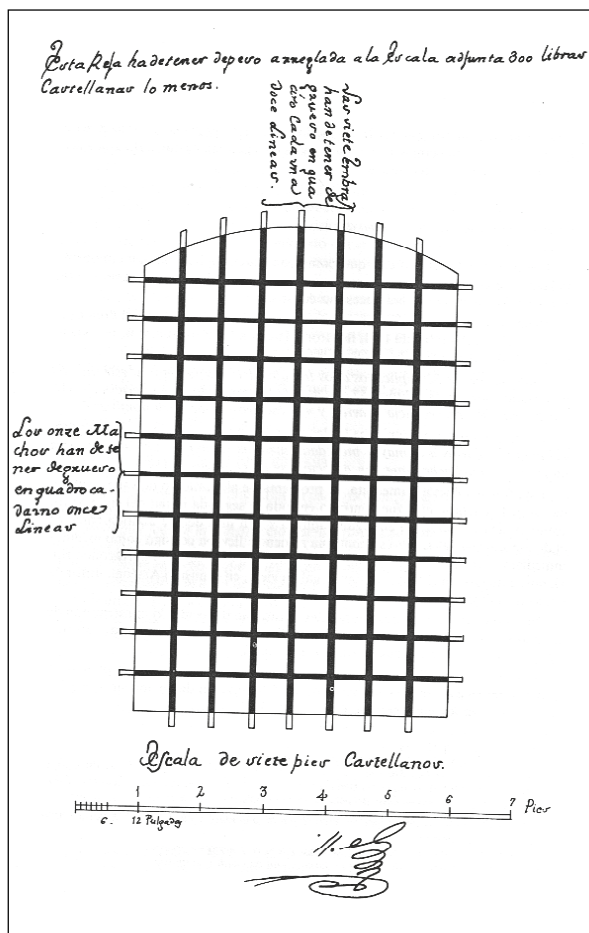 Esta Reja ha de tener de peso arreglada a la Escala adjunta 300 libras
Castellanas lo menos.
Las siete Embras
han de tener de
grueso en qua
dro Cada una
doce Lineas.
Los onze Ma
chos han de te
ner de grueso
en quadro ca-
da uno once
Lineas
Escala de siete pies Castellanos.
1 2 3 4 5 6 7 Pies
6. 12 Pulgadas